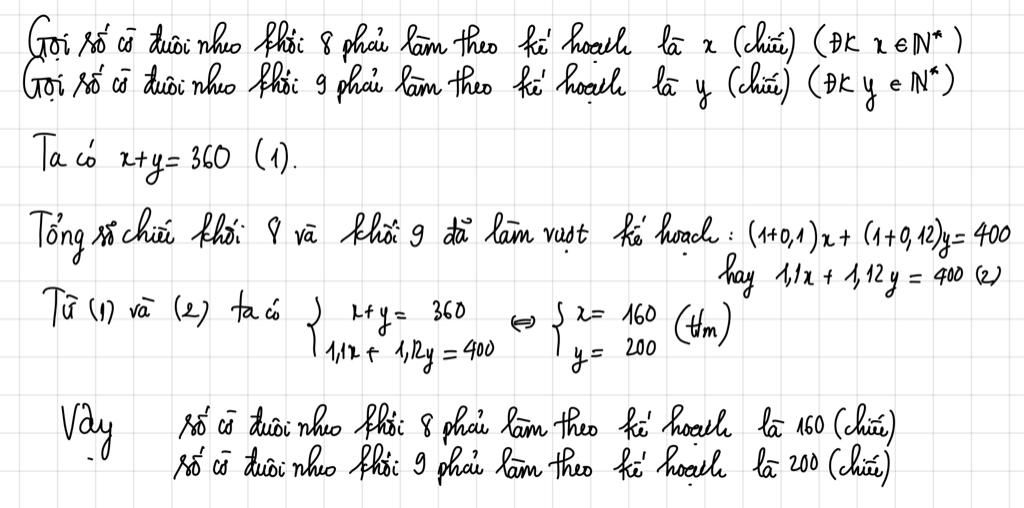 Gọi số cờ đuôi nheo khối 8 phải làm theo kế hoạch là x (chiếc) (ĐK x ∈ N*)
Gọi số cờ đuôi nheo khối 9 phải làm theo kế hoạch là y (chiếc) (ĐK y ∈ N*)
Ta có x+y= 360 (1).
Tổng số chiếc khối 8 và khối 9 đã làm vượt kế hoạch : (1+0,1)x + (1+0,12)y= 400
hay 1,1x + 1,12y = 400 (2)
Từ (1) và (2) ta có { x+y= 360 ⇔ { x= 160 (tm)
1,1x + 1,12y = 400 y= 200
Vậy số cờ đuôi nheo khối 8 phải làm theo kế hoạch là 160 (chiếc)
số cờ đuôi nheo khối 9 phải làm theo kế hoạch là 200 (chiếc)